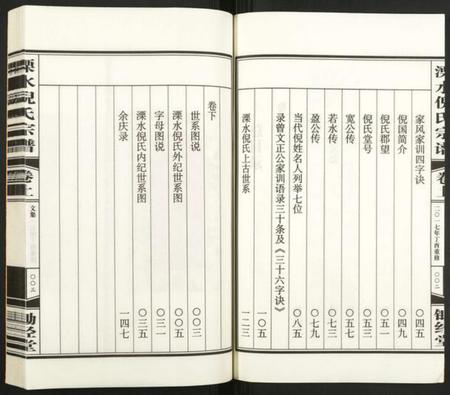 溧水倪氏宗谱
卷上
二〇一七年丁酉重修
〇〇二
锄经堂
家风家训四字诀 〇四五
倪国简介 〇四九
倪氏郡望 〇五一
倪氏堂号 〇五三
宽公传 〇五七
若水传 〇七七
盈公传 〇七九
当代倪姓名人列举七位 〇八五
录曾文正公家训语录三十条及《三十六字诀》 一〇五
溧水倪氏上古世系 一二三
卷下
世系图说 〇〇三
溧水倪氏外纪世系图 〇〇五
字母图说 〇三一
溧水倪氏内纪世系图 〇三五
余庆录 一四七
溧水倪氏宗谱
卷上
文集
〇〇三
锄经堂